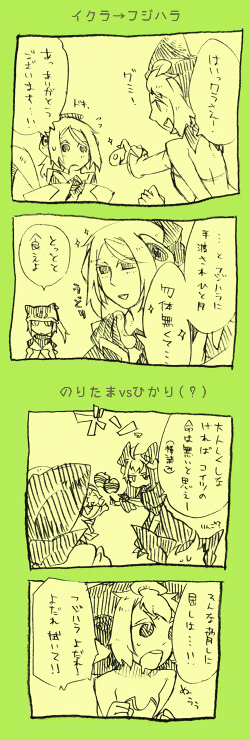 イクラ→フジハラ
はいっクラさえ!
グミ!
ドキ
あっありがとう
ございます…!
…と フジハラに
手渡されひと月
勿体無くて…
とっとと
食えよ
のりたまvsひかり(?)
大人しくしな
ければ コイツの
命は無いと思えー
(棒読み)
りんご?
そんな脅しに
屈しは…!!
ぬぅぅ
フジハラよだれ!
よだれ拭いて!!